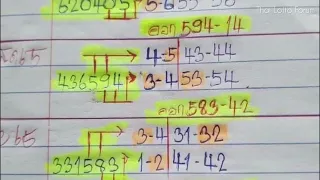 620405 5-6 53-56
ออก 594-14
4-5 43-44
436594 3-4 53-54
ออก 583-42
3-4 31-32
331583 1-2 41-42